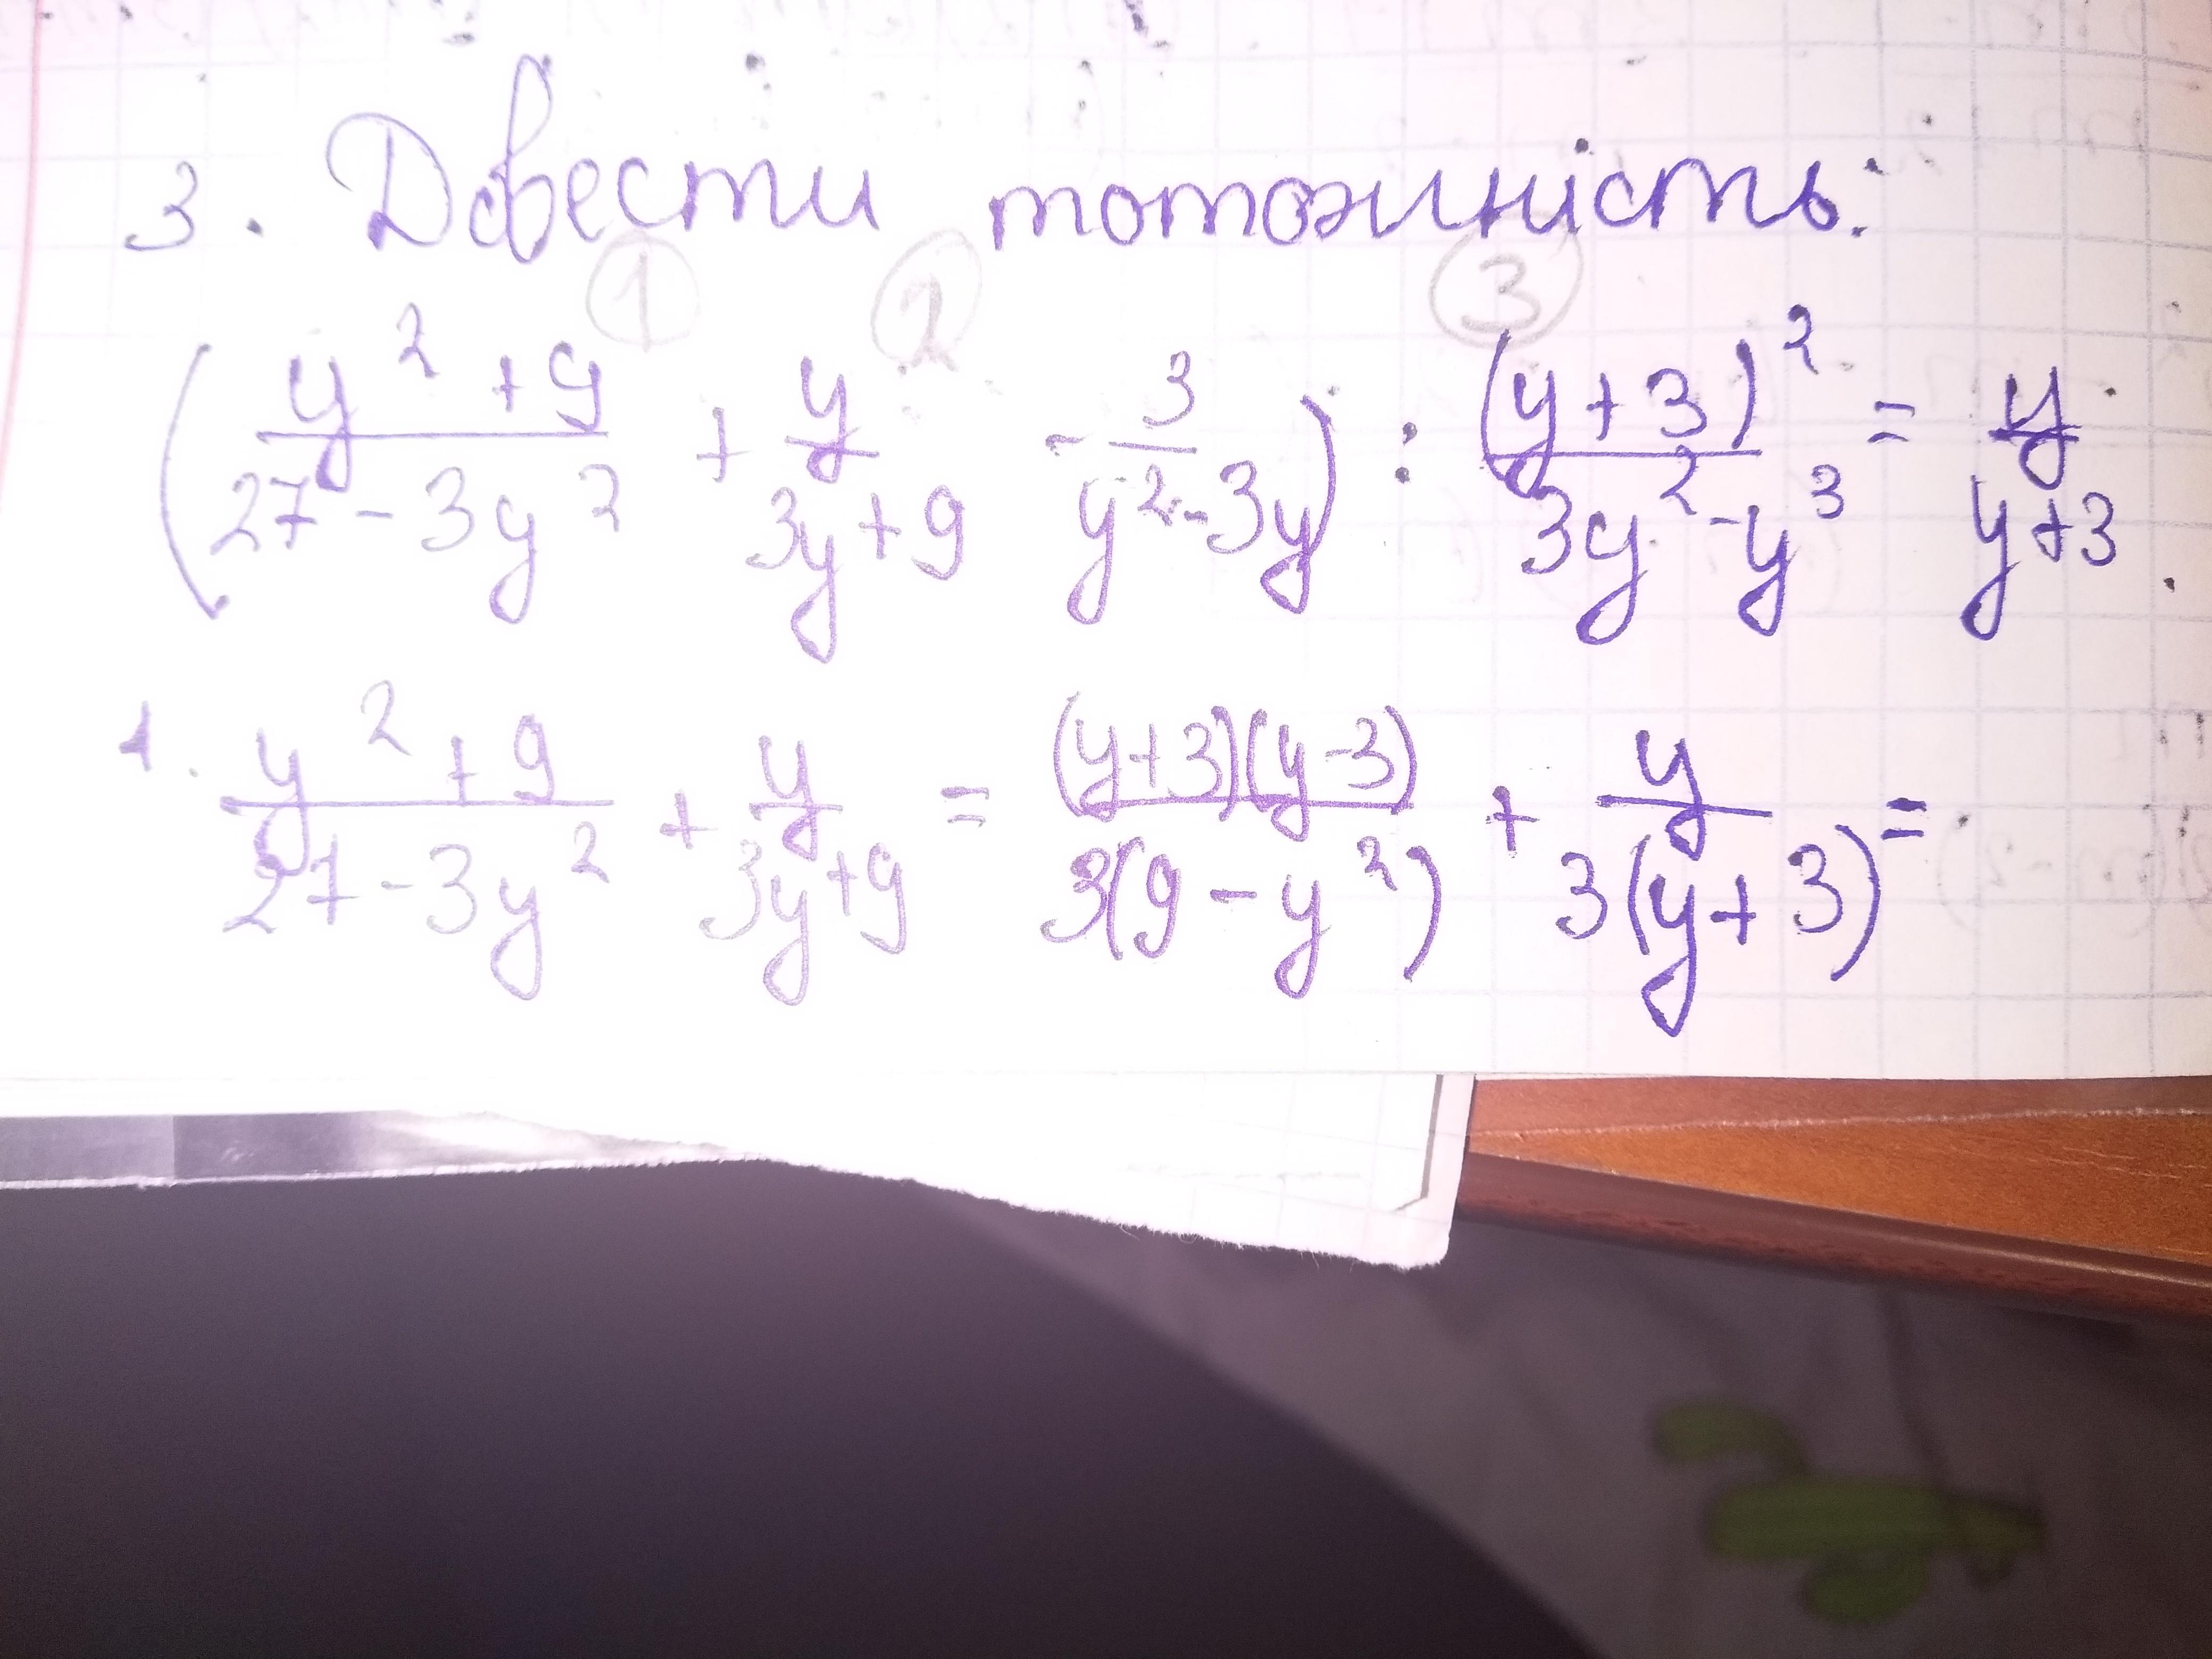 3. Довести тотожність:
① ② ③
(y² + 9 / 27 - 3y² + y / 3y + 9 - 3 / y² - 3y) : (y + 3)² / 3y² - y³ = y / y + 3.
1. y² + 9 / 27 - 3y² + y / 3y + 9 = (y + 3)(y - 3) / 3(9 - y²) + y / 3(y + 3) =